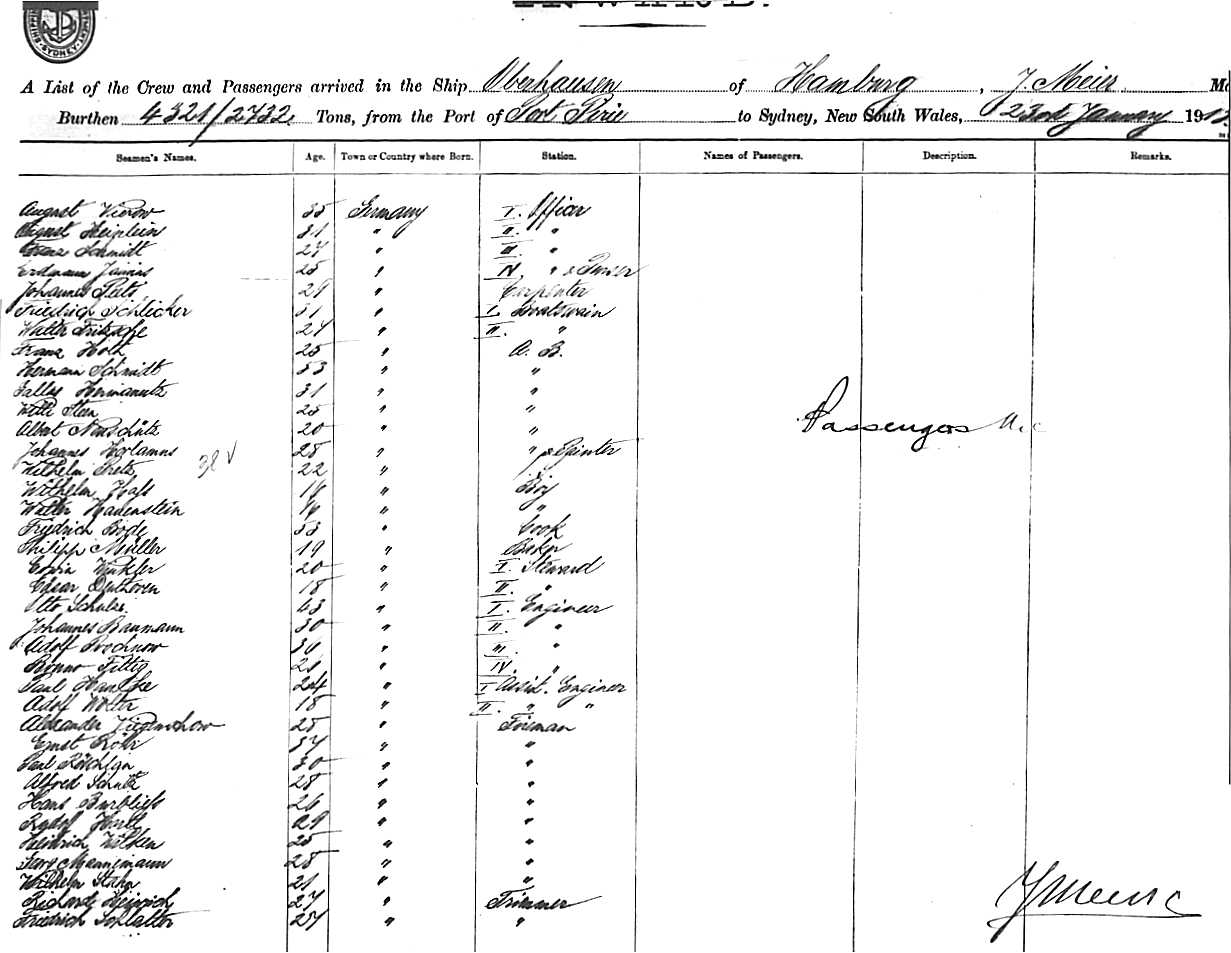 A List of the Crew and Passengers arrived in the Ship Oberhausen of Hamburg, J. Meier
Burthen 4321/2732 Tons, from the Port of Port Pirie to Sydney, New South Wales, 23rd January 191
Seamen's Names. Age. Town or Country where Born. Station. Names of Passengers. Description. Remarks.
August Vierow 35 Germany I. Officer
August 31 " II. "
Franz Schmidt 27 " III. "
Erdmann 25 " IV. " & Purser
Johannes Peets 29 " Carpenter
Friedrich Schlicker 31 " I. Boatswain
Walter Fritzsche 24 " II. "
Franz Holz 25 " A. B.
Hermann Schmidt 53 " "
Hermanutz 31 " "
Willi Steen 25 " "
Albert Neuschütz 20 " "
Passengers
Johannes 28 " "
Wilhelm 22 "
Wilhelm Hass " Boy
Walter Hauenstein 16 " "
Friedrich Bode 53 " Cook
Philipp Müller 19 " Baker
Erwin Winkler 20 " I. Steward
18 " II. "
Otto Schulze 43 " I. Engineer
Johannes Baumann 30 " II. "
Adolf Prochnow " III. "
21 " IV. "
Paul 24 " I Assist. Engineer
Adolf Wolter 18 " II. " "
Alexander 25 " Fireman
Ernst Röhr 37 " "
Paul 30 " "
Alfred Schütz 28 " "
Hans 26 " "
Rudolf 29 " "
Heinrich Wilken 25 " "
Georg Mannemann 28 " "
Wilhelm Stahn 21 " "
Richard Heinrich 27 " Trimmer
Friedrich Schlatter 27 " "